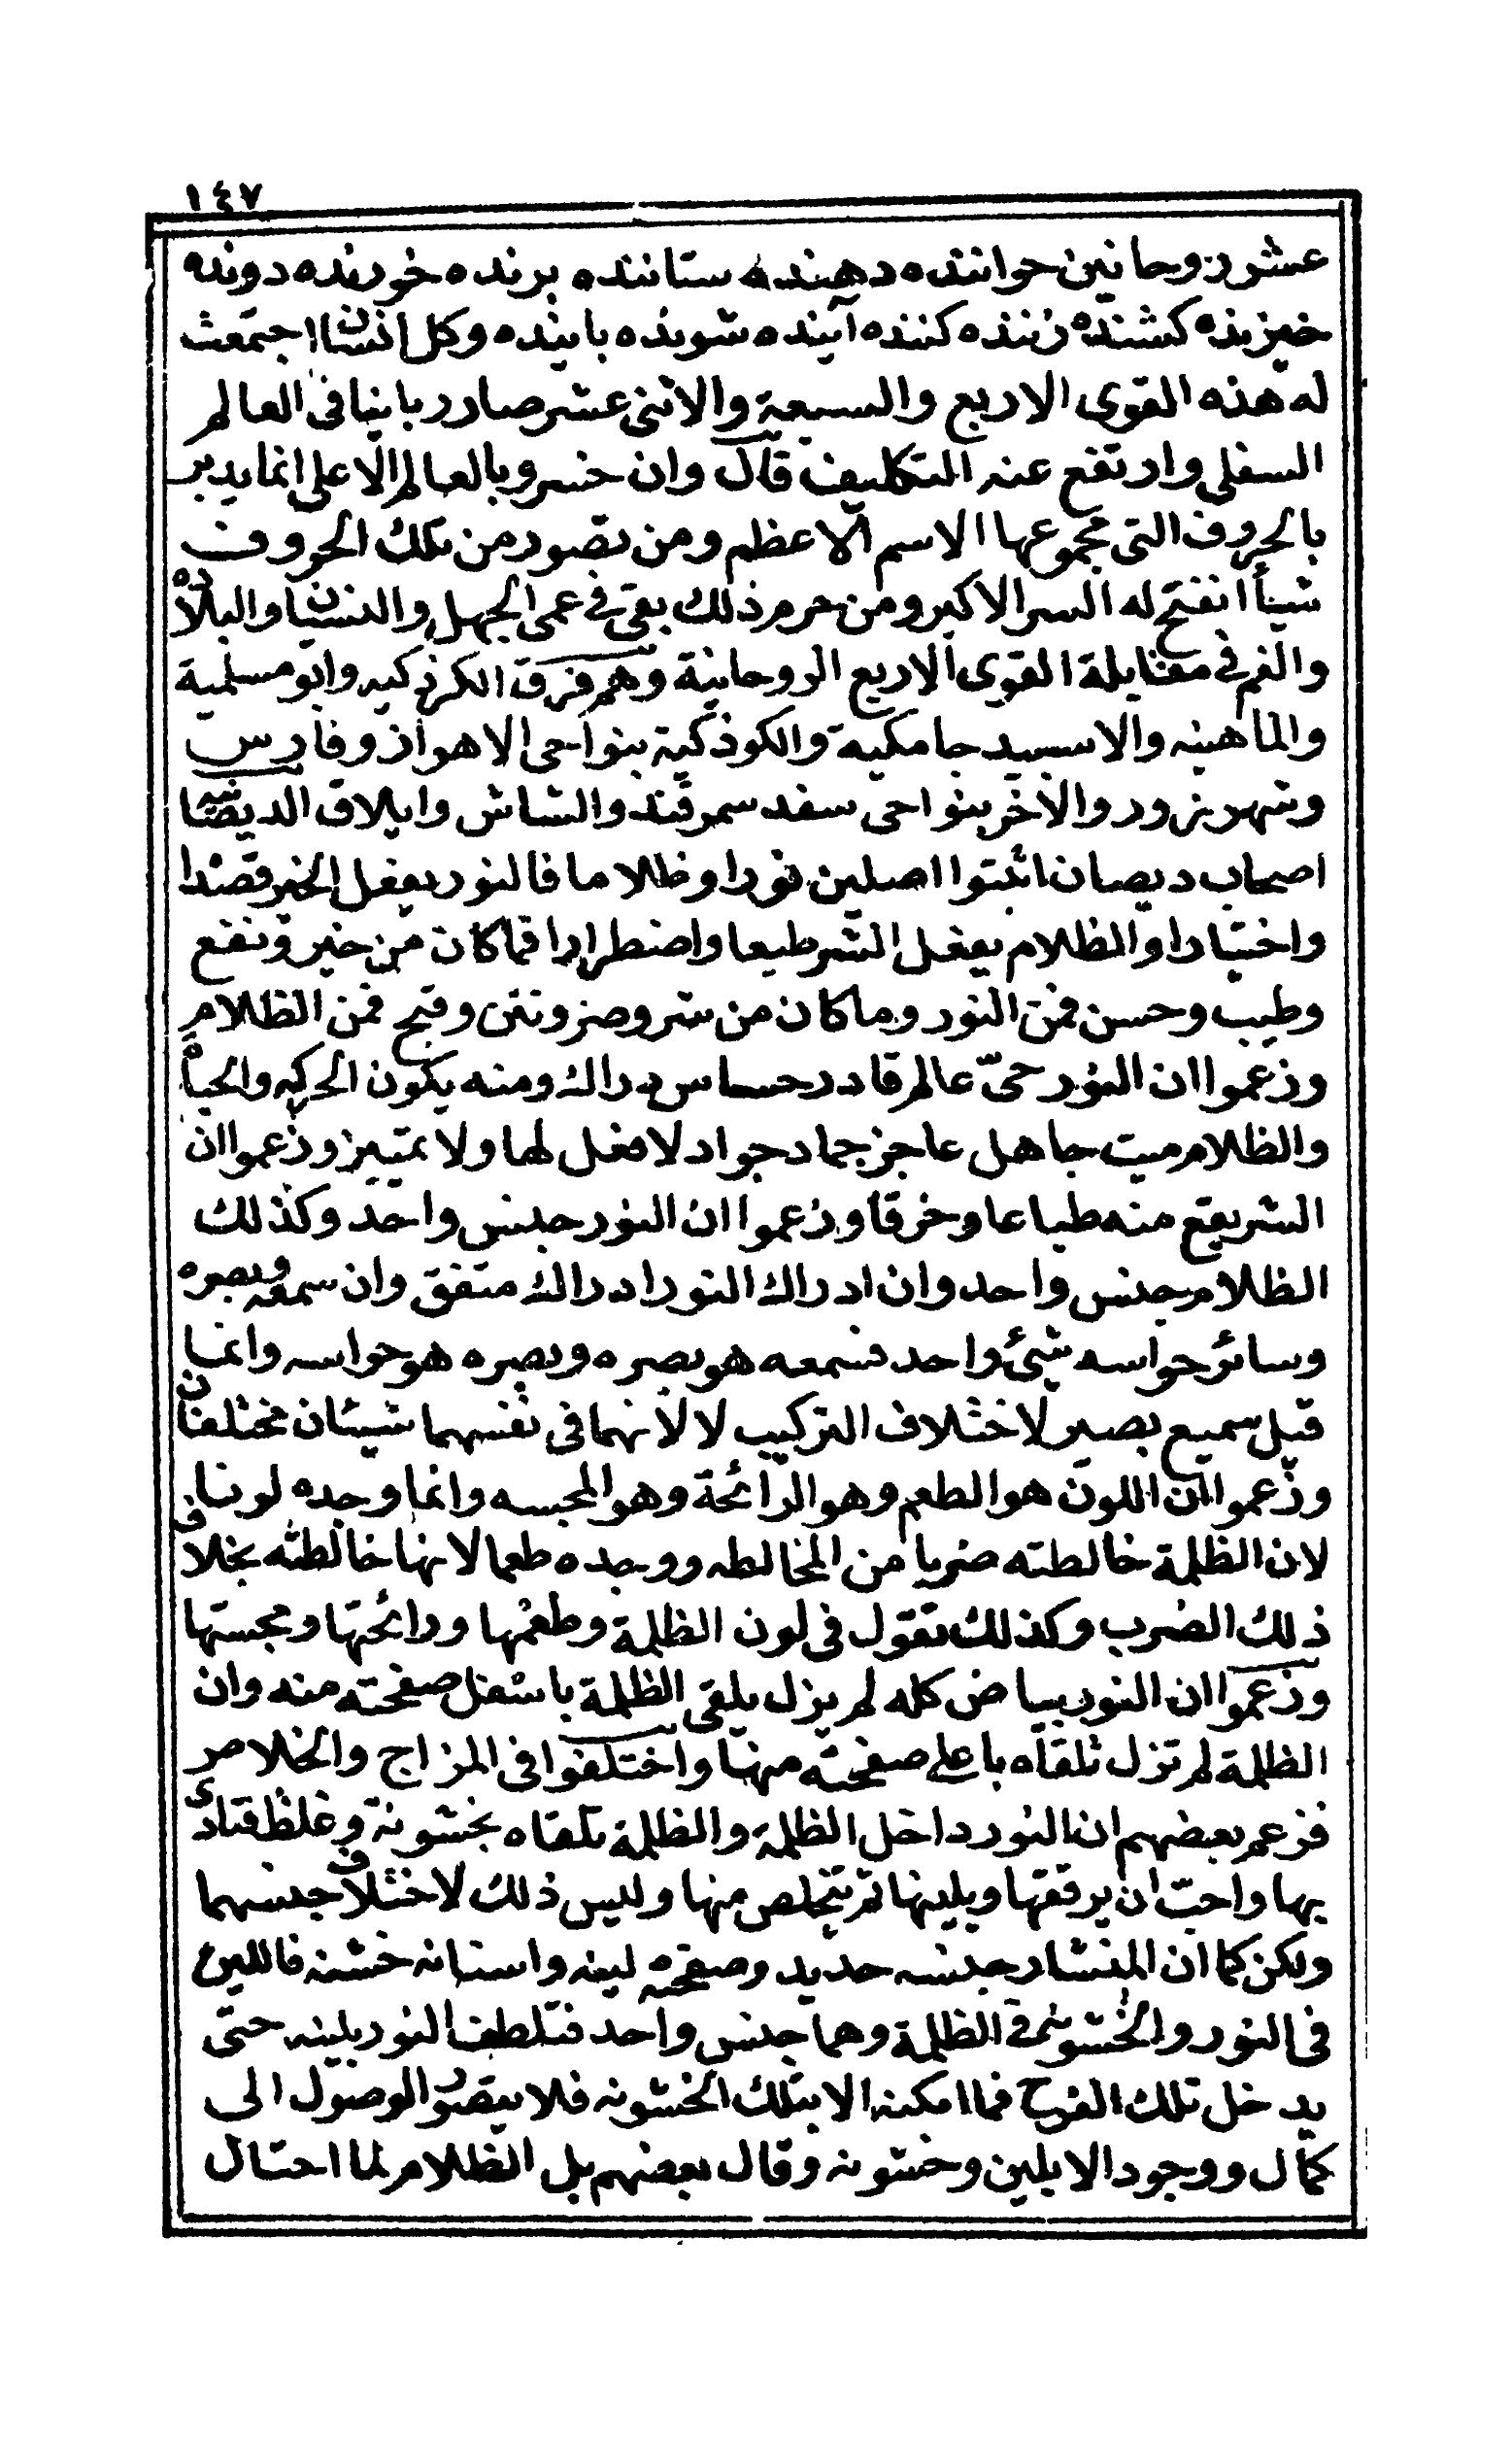 ١٤٧
عشر روحانيين خواننده دهنده ستاننده برنده خورنده دونده
خيزنده كشنده زننده كننده آينده شونده باينده وكل انسان اجتمعت
له هذه القوى الاربع والسبعة والاثنى عشر صار ربانيا فى العالم
السفلى وارتفع عنه التكليف قال وان خسرو بالعالم الاعلى انما يدبر
بالحروف التى مجموعها الاسم الاعظم ومن تصور من تلك الحروف
شيأ انفتح له السر الاكبر ومن حرم ذلك بقى فى عمى الجهل والنسيان والبلاده
والغم فى مقابلة القوى الاربع الروحانية وهم فرق الكرذكيه وابو مسلمية
والماهنيه والاسبيد جامكية والكوذكية بنواحى الاهواز وفارس
وشهر زور والاخر بنواحى سغد سمرقند والشاش وايلاق الديصانيه
اصحاب ديصان اثبتوا اصلين نورا وظلاما فالنور يفعل الخير قصدا
واختيارا والظلام يفعل الشر طبعا واضطرارا فما كان من خير ونفع
وطيب وحسن فمن النور وما كان من شر وضر ونتن وقبح فمن الظلام
وزعموا ان النور حىّ عالم قادر حساس دراك ومنه يكون الحركه والحياة
والظلام ميت جاهل عاجز جماد جواد لا فعل لها ولا تمييز وزعموا ان
الشر يقع منه طباعا وخرقا وزعموا ان النور جنس واحد وكذلك
الظلام جنس واحد وان ادراك النور ادراك متفق وان سمعه وبصره
وسائر حواسه شىئ واحد فسمعه هو بصره وبصره هو حواسه وانما
قيل سميع بصير لاختلاف التركيب لا لانهما فى نفسهما شيئان مختلفان
وزعموا ان اللون هو الطعم وهو الرائحة وهو المجسه وانما وجده لونا
لان الظلمة خالطته ضربا من المخالطه ووجده طعما لانها خالطته بخلاف
ذلك الضرب وكذلك تقول فى لون الظلمة وطعمها ورائحتها ومجستها
وزعموا ان النور بياض كله لم يزل يلقى الظلمة باسفل صفحته منه وان
الظلمة لم تزل تلقاه باعلى صفحته منها واختلفوا فى المزاج والخلاص
فزعم بعضهم ان النور داخل الظلمة والظلمة تلقاه بخشونة وغلظ فتاذى
بها واحبّ ان يرققها ويلينها ثم يتخلص منها وليس ذلك لاختلاف جنسهما
ولكن كما ان المنشار جنسه حديد وصفحته لينه واسنانه خشنه فاللين
فى النور والخشونه فى الظلمة وهما جنس واحد فتلطف النور بلينه حتى
يدخل تلك الفرج فما امكنه الا بتلك الخشونه فلا يتصور الوصول الى
كمال ووجود الا بلين وخشونه وقال بعضهم بل الظلام لما احتال